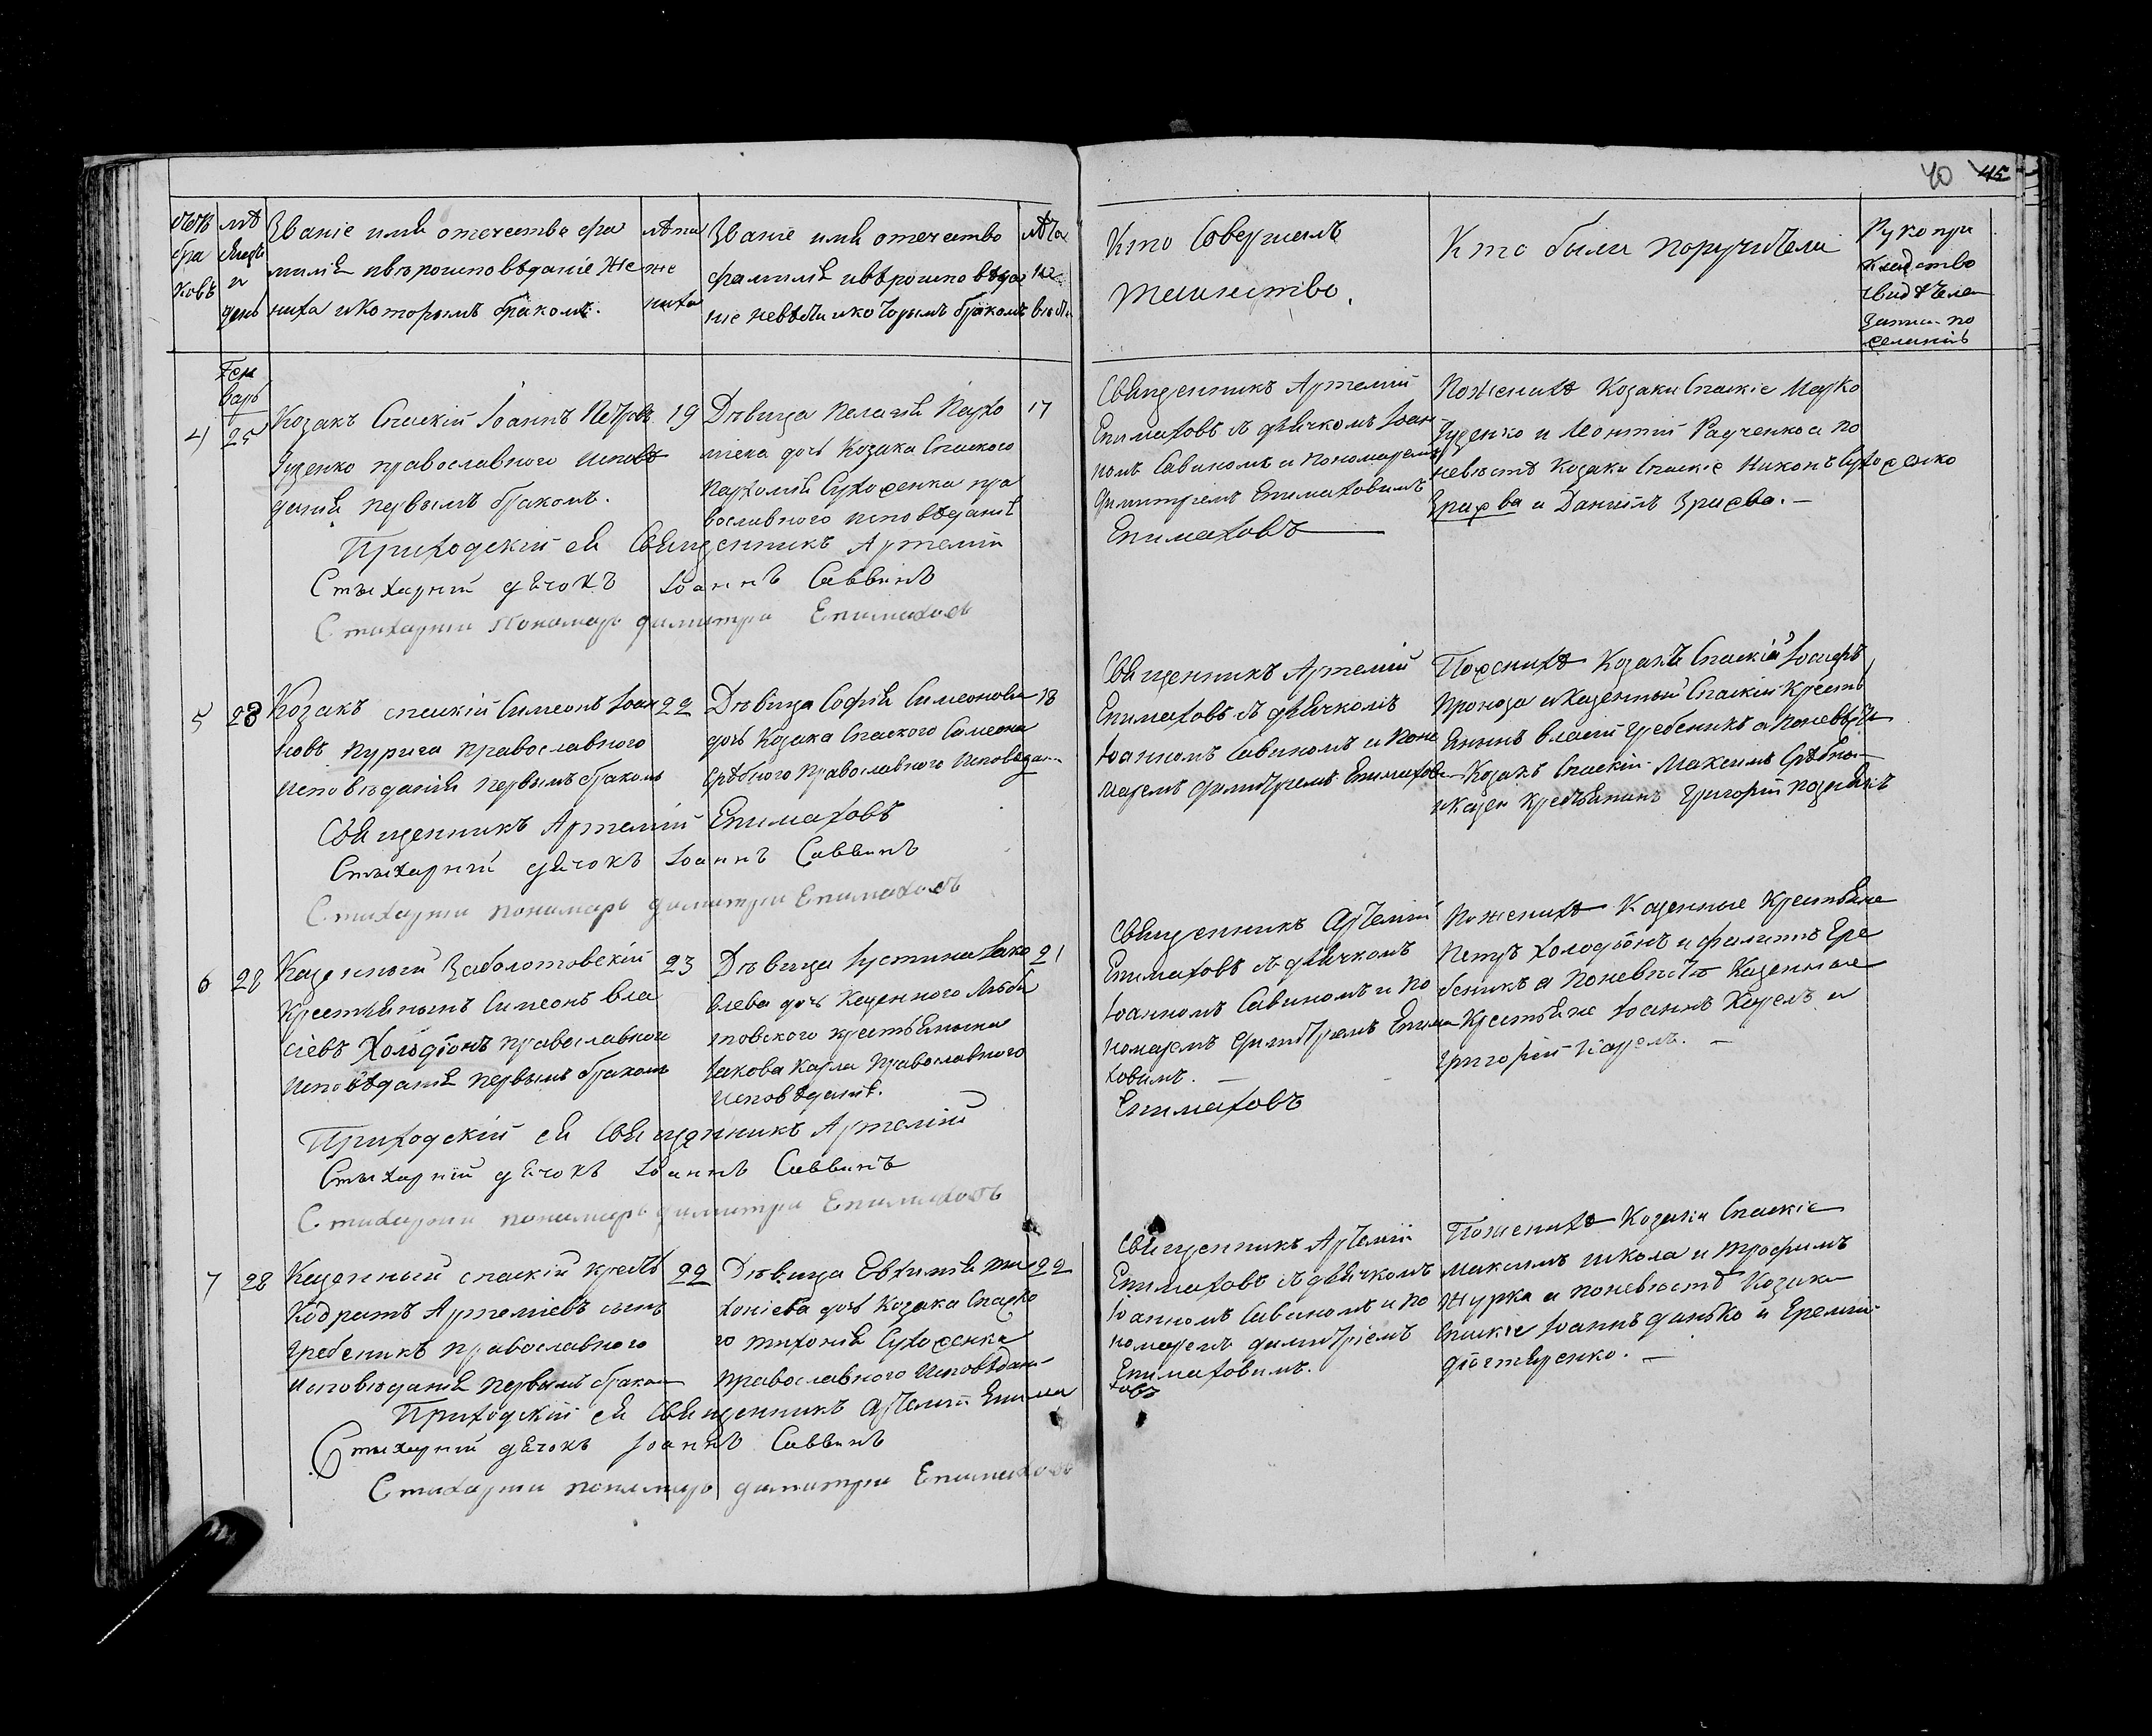 40 45
Счетъ браковъ
Мѣсяцъ и день
Званіе имя отечество фа
милія ивѣроисповѣданіе же
ниха и которымъ бракомъ.
лѣта
же
ниха
Званіе имя отечество
фамилія ивѣроисповѣда
ніе невѣсти икоторымъ бракомъ
лѣта
не
вѣсти
Кто Совершалъ
таинство.
Кто были поручители
Рукопри
кладство
свидѣтеле
записи по
желанію
Ген
варь
4 25
Козакъ Спаскій Іоаннъ Петровъ 19
Гуценко православного исповѣ
данія первымъ бракомъ.
Дѣвица Пелагія Пархо 17
міева дочь Козака Спаского
Пархомія Сухоженка пра
вославного исповѣданія
Священникъ Артемій
Епимаховъ съ дьячкомъ Іоан
номъ Савиномъ и пономаремъ
Димитріемъ Епимаховимъ
Поженихѣ Козаки Спаскіе Марко
Гуценко и Леонтій Радченко а по
невѣстѣ Козаки Спаскіе Никонъ Сухоженко
и Даніилъ
Приходскій ей Священникъ Артемій Епимаховъ
Стыхарній дячокъ Іоаннъ Саввинъ
Стихарни Пономарь димитри Епимаховъ
5 28
Козакъ спаскій Симеонъ Іоан 22
новъ Пурига православного
исповѣданія первымъ бракомъ
Дѣвица Софія Симеонова 18
дочь Козака Спаского Симеона
Срѣбного Православного Исповѣдан
Священникъ Артемій
Епимаховъ съ дьячкомъ
Іоанномъ Савиномъ и поно
маремъ Димитріемъ Епимахови
Поженихѣ Козакъ Спаскій Іосифъ
Проноза и Казенный Спаскій Кресть
янинъ Власій Гребеникъ а поневѣсти
Козакъ Спаскій Максимъ Срѣбно
и Казен крестьянинъ Григорій Познякъ
Священникъ Артемій Епимаховъ
Стыхарній дячокъ Іоаннъ Саввинъ
Стихарни пономарь димитри Епимаховъ
6 28
Казенный Заболотовскій 23
Крестьянинъ Симеонъ Вла
сіевъ Холодіонъ православног
Исповѣданія первымъ бракомъ
Дѣвица Іустина Іако 21
влева дочь Казенного
крестьянина
Іакова Карпа Православного
Исповѣданія.
Священникъ Артемій
Епимаховъ съ дьячкомъ
Іоанномъ Савиномъ и по
номаремъ Димитріемъ Епима
ховимъ.
Поженихѣ Казенные Крестьяне
Петръ Холодіонъ и Филиппъ Гре
беникъ а Поневѣстѣ Казенные
Крестьяне Іоаннъ Карпъ и
Григорій Карпъ.
Приходскій ей Священникъ Артемій Епимаховъ
Стыхарній дячокъ Іоаннъ Саввинъ
Стихарни пономарь димитри Епимаховъ
7 28
Казенный спаскій крест 22
Кодратъ Артеміевъ сынъ
Гребеникъ православного
Исповѣданія первымъ браком
Дѣвица Евфимія Ти 22
хоніева дочь Козака Спаско
го Тихонія Сухоженка
православного Исповѣдан
Священникъ Артемій
Епимаховъ съ дьячкомъ
Іоанномъ Савиномъ и по
номаремъ Димитріемъ
Епимаховимъ.
Поженихѣ Козаки Спаскіе
Максимъ Школа и Трофимъ
Журка а поневѣстѣ Козаки
Спаскіе Іоаннъ Данько и Еремій
Приходскій ей Священникъ Артемій Епима
ховъ
Стыхарній дячокъ Іоаннъ Саввинъ
Стихарни пономарь димитри Епимаховъ